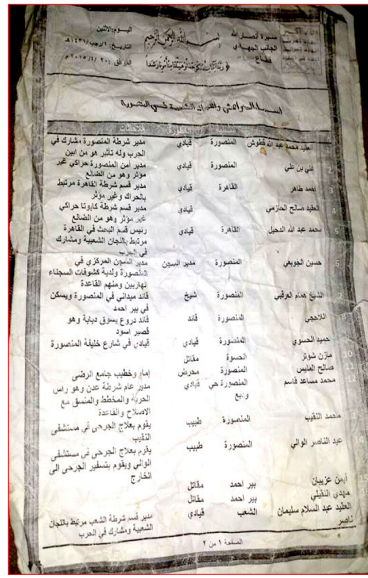 مسيرة أنصار الله
الجانب الجهادي
قطاع
بسم الله الرحمن الرحيم
اليوم: الاثنين
التاريخ:
الموافق:
في المنصورة
العقيد محمد عبد الله قطوش المنصورة قيادي مدير شرطة المنصورة مشارك في
الحرب وله تأثير هو من ابين
المنصورة قيادي مدير امن المنصورة حراكي غير
مؤثر وهو من الضالع
احمد طاهر القاهرة قيادي مدير قسم شرطة القاهرة مرتبط
بالحراك وغير مؤثر
العقيد صالح الحازمي قيادي مدير قسم شرطة كابوتا حراكي
غير مؤثر وهو من الضالع
محمد عبد الله الدحيل القاهرة قيادي رئيس قسم البحث في القاهرة
مرتبط باللجان الشعبية ومشارك
في الحرب
حسين الجويفي المنصورة مدير السجن مدير السجن المركزي في
المنصورة ولديه كشوفات السجناء
الهاربين ومنهم القاعدة
الشيخ همام المنصورة شيخ قائد ميداني في المنصورة ويسكن
في بير احمد
اللاحجي المنصورة قائد قائد دروع يسوق دبابة وهو
قصير اسود
حميد الحسوي المنصورة قيادي قيادي في شارع خليفة المنصورة
مازن شوتر الحسوة مقاتل
صالح المنصورة محرض إمام وخطيب جامع الرضى
محمد مساعد قاسم المنصورة حي قيادي مدير عام شرطة عدن وهو راس
الحربة والمخطط والمنسق مع
الاصلاح والقاعدة
محمد النقيب المنصورة طبيب يقوم بعلاج الجرحى في مستشفى
النقيب
عبد الناصر الوالي المنصورة طبيب يقوم بعلاج الجرحى في مستشفى
الوالي ويقوم بتسفير الجرحى الى
الخارج
ايمن عزيبان بير احمد مقاتل
مهدي بير احمد مقاتل
العقيد عبد السلام سليمان الشعب قيادي مدير قسم شرطة الشعب مرتبط باللجان
ناصر الشعبية ومشارك في الحرب
الصفحة ١ من ٢